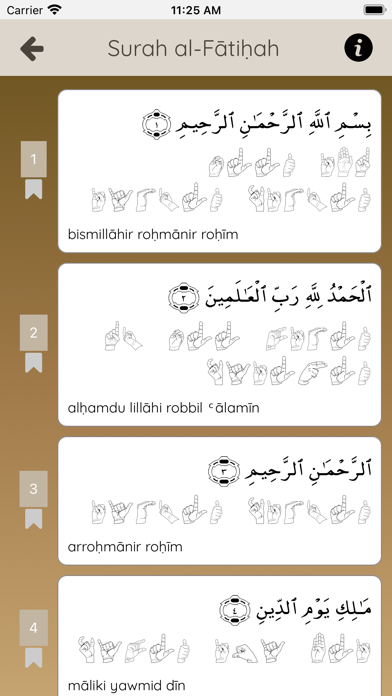 Carrier 11:25 AM
Surah al-Fātiḥah
1
بِسْمِ ٱللَّهِ ٱلرَّحْمَـٰنِ ٱلرَّحِيمِ ١
bismillāhir roḥmānir roḥīm
2
ٱلْحَمْدُ لِلَّهِ رَبِّ ٱلْعَـٰلَمِينَ ٢
alḥamdu lillāhi robbil ʿālamīn
3
ٱلرَّحْمَـٰنِ ٱلرَّحِيمِ ٣
arroḥmānir roḥīm
4
مَـٰلِكِ يَوْمِ ٱلدِّينِ ٤
māliki yawmid dīn